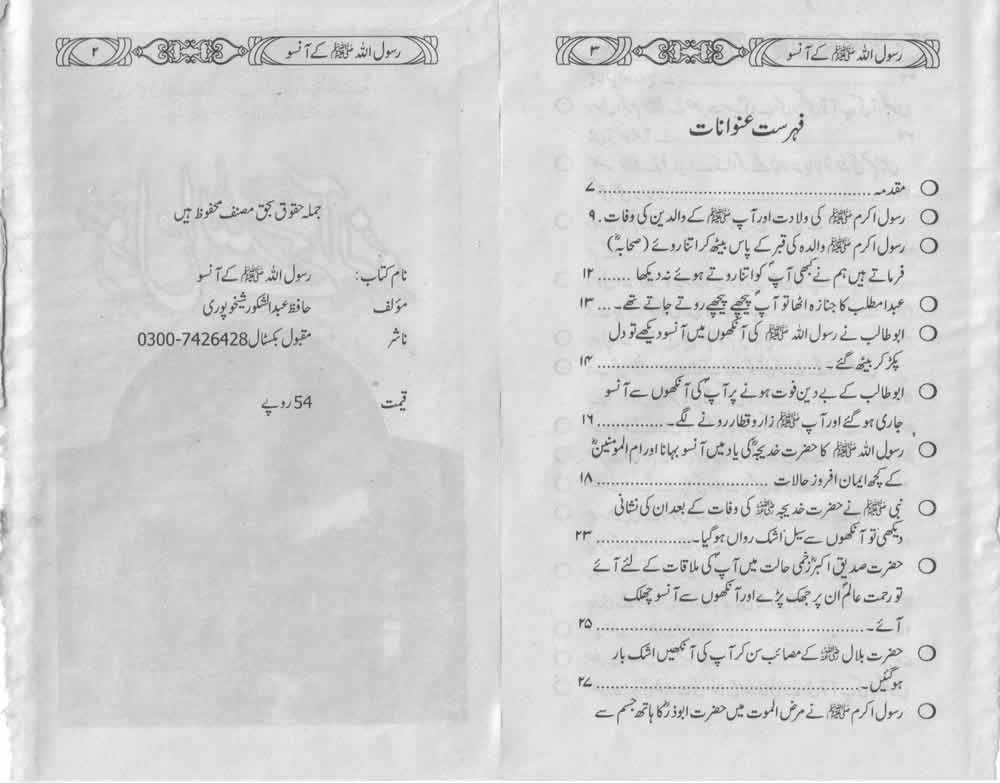 رسول اللہ ﷺ کے آنسو
۲
جملہ حقوق بحق مصنف محفوظ ہیں
نام کتاب: رسول اللہ ﷺ کے آنسو
مؤلف حافظ عبدالشکور شیخوپوری
ناشر مقبول بکسٹال 0300-7426428
قیمت 54 روپے
رسول اللہ ﷺ کے آنسو
۳
فہرست عنوانات
مقدمہ ........................................ ۷
رسول اکرم ﷺ کی ولادت اور آپ ﷺ کے والدین کی وفات . ۹
رسول اکرم ﷺ والدہ کی قبر کے پاس بیٹھ کر اتنا روئے (صحابہؓ)
فرماتے ہیں ہم نے کبھی آپؐ کو اتنا روتے ہوئے نہ دیکھا ....... ۱۲
عبدالمطلب کا جنازہ اٹھا تو آپؐ پیچھے پیچھے روتے جاتے تھے۔ ... ۱۳
ابو طالب نے رسول اللہ ﷺ کی آنکھوں میں آنسو دیکھے تو دل
پکڑ کر بیٹھ گئے۔ ................................ ۱۴
ابو طالب کے بے دین فوت ہونے پر آپؐ کی آنکھوں سے آنسو
جاری ہو گئے اور آپ ﷺ زار و قطار رونے لگے۔ .............. ۱۶
رسول اللہ ﷺ کا حضرت خدیجہؓ کی یاد میں آنسو بہانا اور ام المومنینؓ
کے کچھ ایمان افروز حالات ............................ ۱۸
نبی ﷺ نے حضرت خدیجہ رضی اللہ عنہا کی وفات کے بعد ان کی نشانی
دیکھی تو آنکھوں سے سیل اشک رواں ہو گیا۔ ................... ۲۳
حضرت صدیق اکبرؓ زخمی حالت میں آپؐ کی ملاقات کے لئے آئے
تو رحمت عالمؐ ان پر جھک پڑے اور آنکھوں سے آنسو چھلک
آئے۔ ........................................ ۲۵
حضرت بلال رضی اللہ عنہ کے مصائب سن کر آپ کی آنکھیں اشک بار
ہو گئیں۔ ........................................ ۲۷
رسول اکرم ﷺ نے مرض الموت میں حضرت ابوذرؓ کا ہاتھ جسم سے